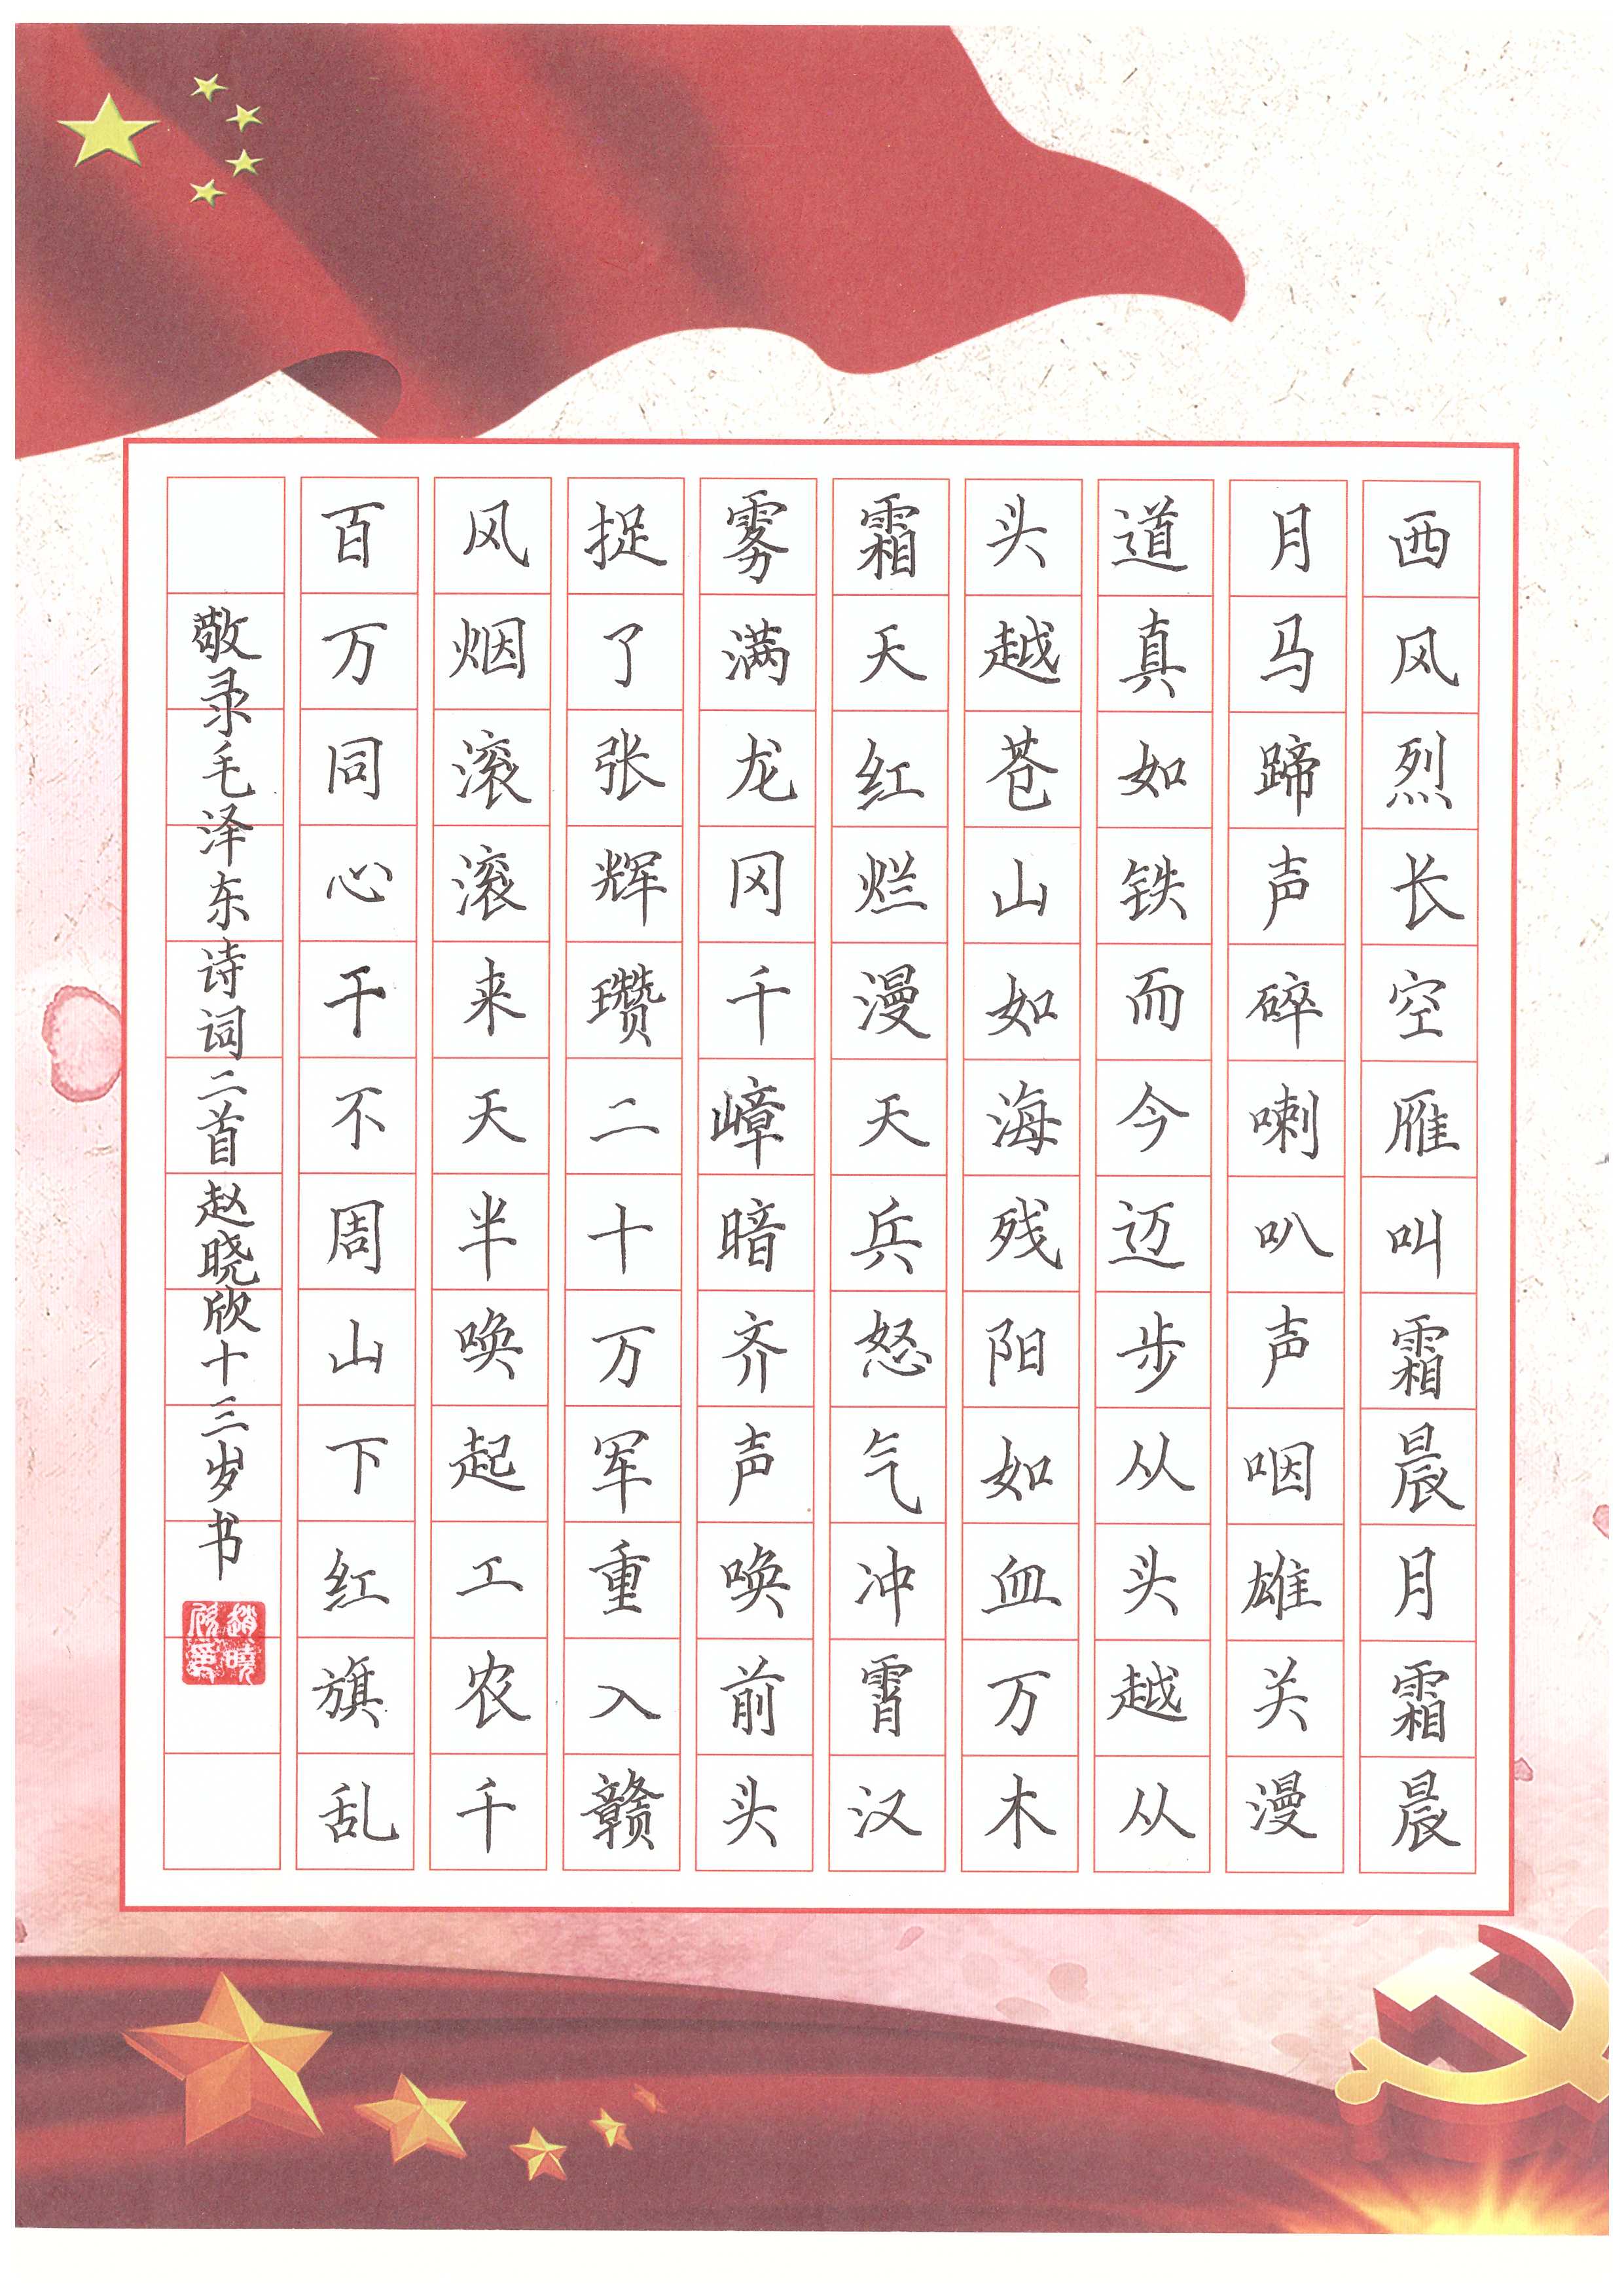 西风烈长空雁叫霜晨月霜晨
月马蹄声碎喇叭声咽雄关漫
道真如铁而今迈步从头越从
头越苍山如海残阳如血万木
霜天红烂漫天兵怒气冲霄汉
雾满龙冈千嶂暗齐声唤前头
捉了张辉瓒二十万军重入赣
风烟滚滚来天半唤起工农千
百万同心干不周山下红旗乱
敬录毛泽东诗词二首赵晓欣十三岁书
趙曉欣印